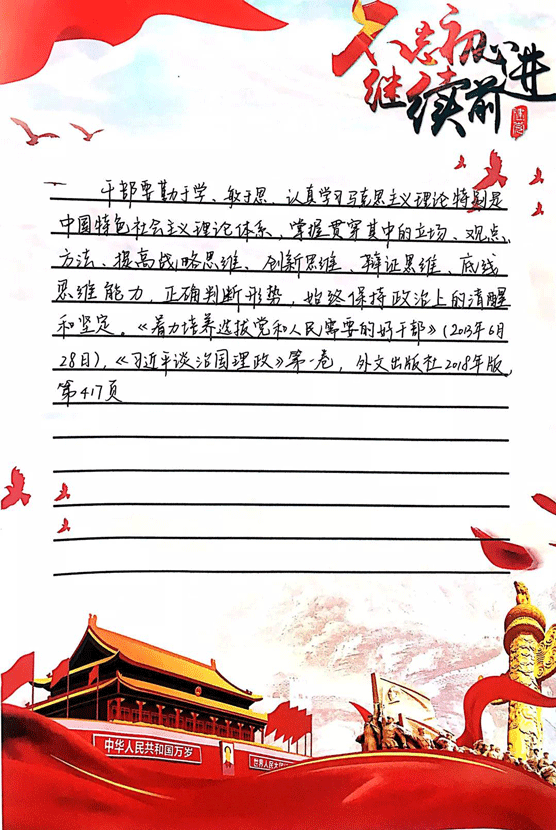 不忘初心
继续前进
干部要勤于学、敏于思、认真学习马克思主义理论特别是
中国特色社会主义理论体系，掌握贯穿其中的立场、观点、
方法、提高战略思维、创新思维、辩证思维、底线
思维能力，正确判断形势，始终保持政治上的清醒
和坚定。《着力培养选拔党和人民需要的好干部》(2013年6月
28日)，《习近平谈治国理政》第一卷，外文出版社2018年版，
第417页
中华人民共和国万岁
世界人民大